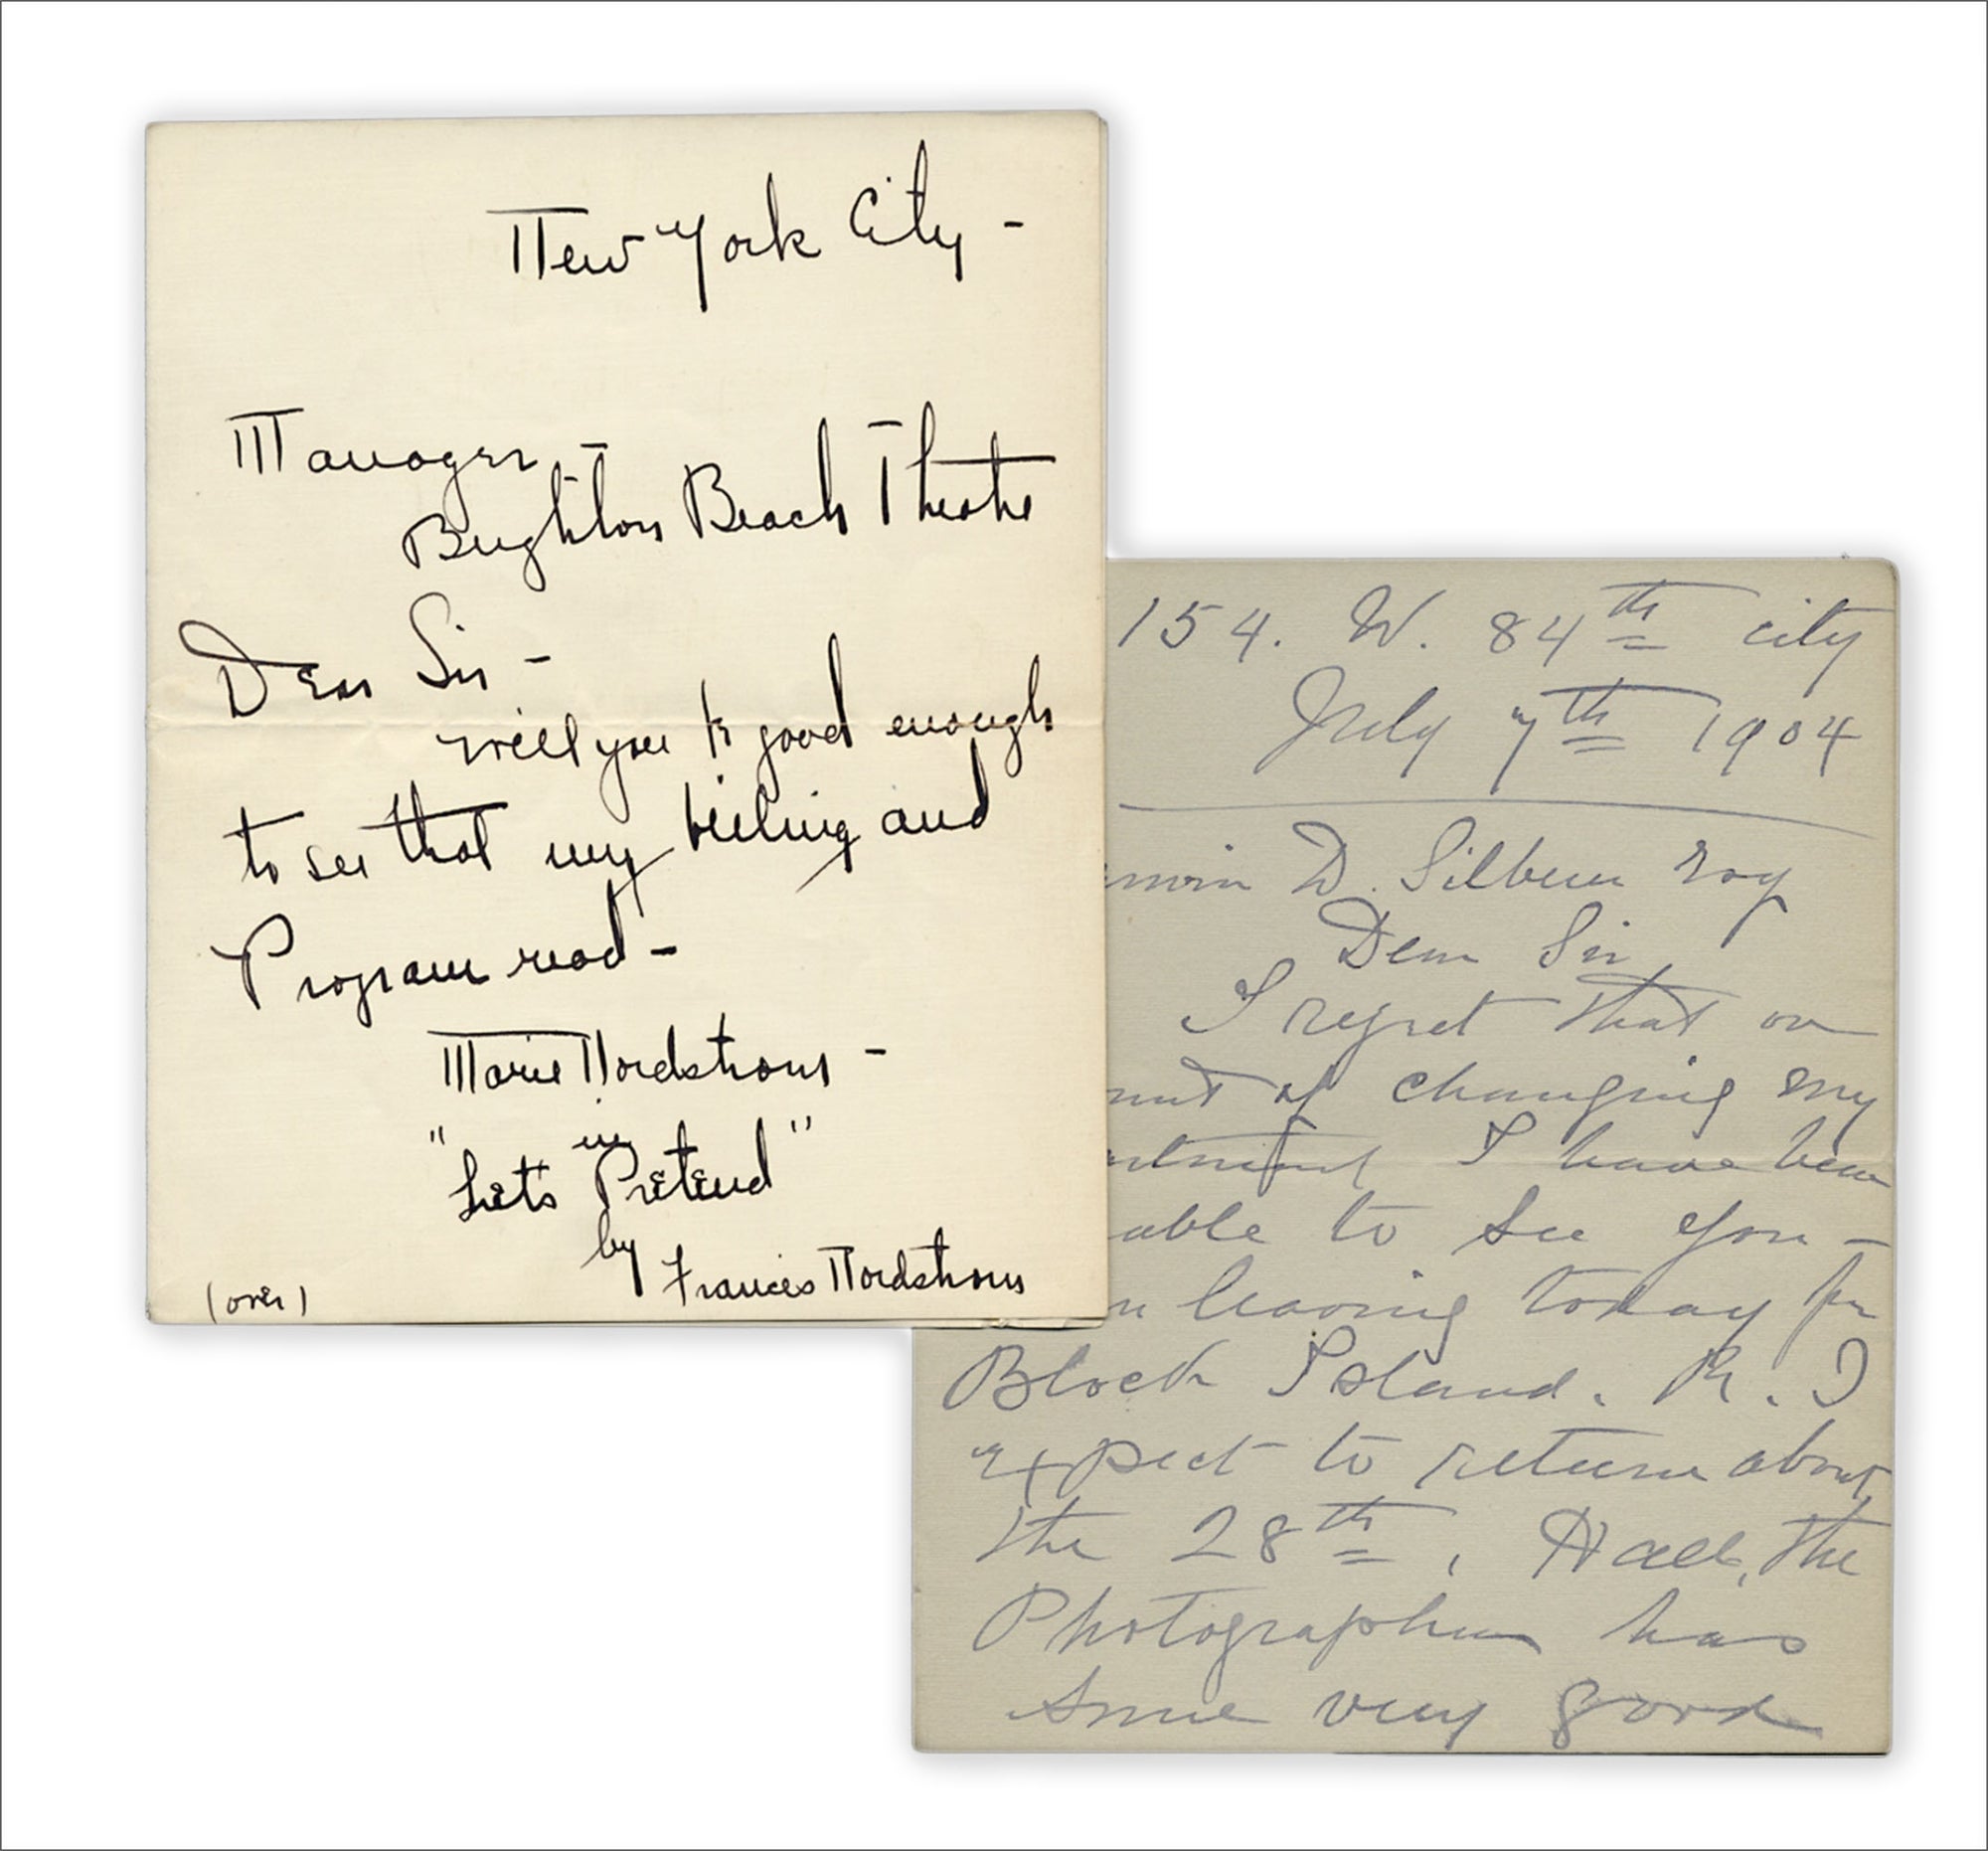 New York City -
Manager -
Brighton Beach Theatre
Dear Sir -
Will you be good enough
to see that my billing and
Program read -
Marie Nordstrom -
in
"Let's Pretend"
by
Frances Nordstrom
(over)
154. W. 84th city
July 7th 1904
D. Silbern Esq
Dear Sir
I regret that on
of changing my
I have been
able to see you -
leaving today for
Block Island. R. I
expect to return about
the 28th, Hall, the
Photographer has
some very good